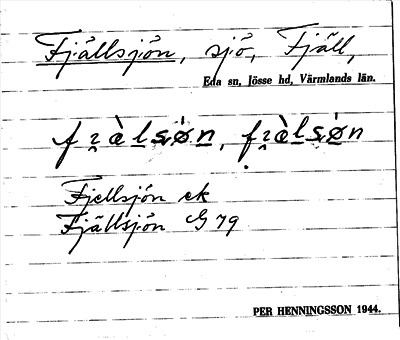 Fjällsjön, sjö, Fjäll,
Eda sn, Jösse hd, Värmlands län.
Fjellsjön ek
Fjällsjön G 79
PER HENNINGSSON 1944.